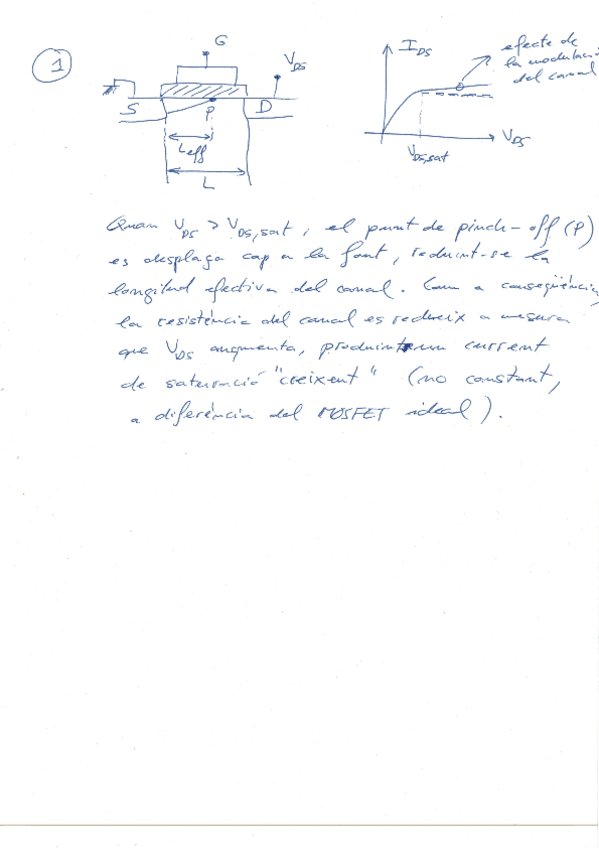 1
G
V_DS
S
P
D
L_eff
L
I_DS
efecte de
la modulació
del canal
V_DS
V_DS,sat
Quan V_DS > V_DS,sat, el punt de pinch-off (P)
es desplaça cap a la font, reduint-se la
longitud efectiva del canal. Com a conseqüència
la resistència del canal es redueix a mesura
que V_DS augmenta, produint un current
de saturació "creixent" (no constant,
a diferència del MOSFET ideal).